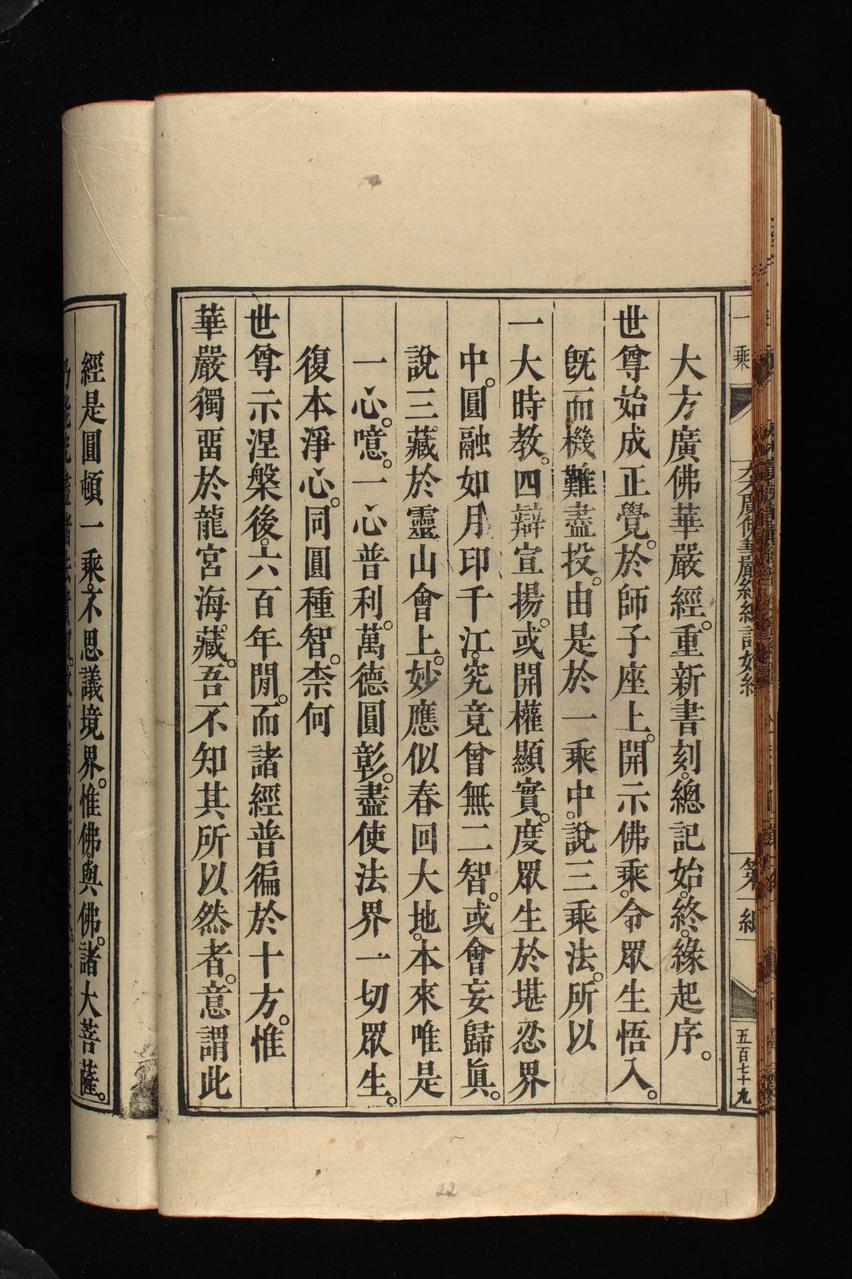 大方廣佛華嚴經。重新書刻。總記始。終。緣起序。
世尊始成正覺。於師子座上。開示佛乘。令眾生悟入。
旣而機難盡投。由是於一乘中。說三乘法。所以
一大時教。四辯宣揚。或開權顯實。度眾生於堪忍界
中。圓融如月印千江。究竟曾無二智。或會妄歸眞。
說三藏於靈山會上。妙應似春回大地。本來唯是
一心。噫。一心普利。萬德圓彰。盡使法界一切眾生。
復本淨心。同圓種智。柰何
世尊示涅槃後。六百年閒。而諸經普徧於十方。惟
華嚴獨畱於龍宮海藏。吾不知其所以然者。意謂此
經是圓頓一乘。不思議境界。惟佛與佛。諸大菩薩。
一乘
大方廣佛華嚴經
第一編
五百七十九
22